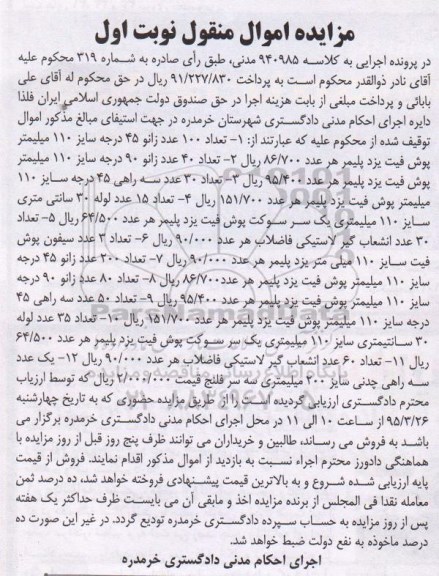 مزایده اموال منقول نوبت اول
در پرونده اجرایی به کلاسه ۹۴۰۹۸۵ مدنی، طبق رأی صادره به شماره ۳۱۹ محکوم علیه
آقای نادر ذوالقدر محکوم است به پرداخت ۹۱/۲۲۷/۸۳۰ ریال در حق محکوم له آقای علی
بابائی و پرداخت مبلغی از بابت هزینه اجرا در حق صندوق دولت جمهوری اسلامی ایران فلذا
دایره اجرای احکام مدنی دادگستری شهرستان خرمدره در جهت استیفای مبالغ مذکور اموال
توقیف شده از محکوم علیه که عبارتند از: ۱- تعداد ۱۰۰ عدد زانو ۴۵ درجه سایز ۱۱۰ میلیمتر
پوش فیت یزد پلیمر هر عدد ۸۶/۷۰۰ ریال ۲- تعداد ۴۰ عدد زانو ۹۰ درجه سایز ۱۱۰ میلیمتر
پوش فیت یزد پلیمر هر عدد ۹۵/۴۰۰ ریال ۳- تعداد ۳۰ عدد سه راهی ۴۵ درجه سایز ۱۱۰
میلیمتر پوش فیت یزد پلیمر هر عدد ۱۵۱/۷۰۰ ریال ۴- تعداد ۱۵ عدد لوله ۳۰ سانتی متری
سایز ۱۱۰ میلیمتری یک سر سوکت پوش فیت یزد پلیمر هر عدد ۶۴/۵۰۰ ریال ۵- تعداد
۳۰ عدد انشعاب گیر لاستیکی فاضلاب هر عدد ۹۰/۰۰۰ ریال ۶- تعداد ۲ عدد سیفون پوش
فیت سایز ۱۱۰ میلی متر یزد پلیمر هر عدد ۹۰/۰۰۰ ریال ۷- تعداد ۲۰۰ عدد زانو ۴۵ درجه
سایز ۱۱۰ میلیمتر پوش فیت یزد پلیمر هر عدد ۸۶/۷۰۰ ریال ۸- تعداد ۸۰ عدد زانو ۹۰ درجه
سایز ۱۱۰ میلیمتر پوش فیت یزد پلیمر هر عدد ۹۵/۴۰۰ ریال ۹- تعداد ۵۰ عدد سه راهی ۴۵
درجه سایز ۱۱۰ میلیمتر پوش فیت یزد پلیمر هر عدد ۱۵۱/۷۰۰ ریال ۱۰- تعداد ۳۵ عدد لوله
۳۰ سانتیمتری سایز ۱۱۰ میلیمتری یک سر سوکت پوش فیت یزد پلیمر هر عدد ۶۴/۵۰۰
ریال ۱۱- تعداد ۶۰ عدد انشعاب گیر لاستیکی فاضلاب هر عدد ۹۰/۰۰۰ ریال ۱۲- یک عدد
سه راهی چدنی سایز ۲۰۰ میلیمتری سه سر فلنج قیمت ۲/۰۰۰/۰۰۰ ریال که توسط ارزیاب
محترم دادگستری ارزیابی گردیده است را از طریق مزایده حضوری که به تاریخ چهارشنبه
۹۵/۳/۲۶ از ساعت ۱۰ الی ۱۱ در محل اجرای احکام مدنی دادگستری خرمدره برگزار می
باشد به فروش می رساند، طالبین و خریداران می توانند ظرف پنج روز قبل از روز مزایده با
هماهنگی دادورز محترم اجراء نسبت به بازدید از اموال مذکور اقدام نمایند. فروش از قیمت
پایه ارزیابی شده شروع و به بالاترین قیمت پیشنهادی فروخته خواهد شد، ده درصد ثمن
معامله نقدا فی المجلس از برنده مزایده اخذ و مابقی آن می بایست ظرف حداکثر یک هفته
پس از روز مزایده به حساب سپرده دادگستری خرمدره تودیع گردد. در غیر این صورت ده
درصد ماخوذه به نفع دولت ضبط خواهد شد.
اجرای احکام مدنی دادگستری خرمدره